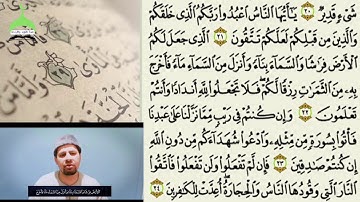 شَىْءٍ قَدِيرٌ ٢٠ يَٰٓأَيُّهَا ٱلنَّاسُ ٱعْبُدُوا۟ رَبَّكُمُ ٱلَّذِى خَلَقَكُمْ
وَٱلَّذِينَ مِن قَبْلِكُمْ لَعَلَّكُمْ تَتَّقُونَ ٢١ ٱلَّذِى جَعَلَ لَكُمُ
ٱلْأَرْضَ فِرَٰشًا وَٱلسَّمَآءَ بِنَآءً وَأَنزَلَ مِنَ ٱلسَّمَآءِ مَآءً فَأَخْرَجَ
بِهِۦ مِنَ ٱلثَّمَرَٰتِ رِزْقًا لَّكُمْ فَلَا تَجْعَلُوا۟ لِلَّهِ أَندَادًا وَأَنتُمْ
تَعْلَمُونَ ٢٢ وَإِن كُنتُمْ فِى رَيْبٍ مِّمَّا نَزَّلْنَا عَلَىٰ عَبْدِنَا
فَأْتُوا۟ بِسُورَةٍ مِّن مِّثْلِهِۦ وَٱدْعُوا۟ شُهَدَآءَكُم مِّن دُونِ ٱللَّهِ
إِن كُنتُمْ صَٰدِقِينَ ٢٣ فَإِن لَّمْ تَفْعَلُوا۟ وَلَن تَفْعَلُوا۟ فَٱتَّقُوا۟
ٱلنَّارَ ٱلَّتِى وَقُودُهَا ٱلنَّاسُ وَٱلْحِجَارَةُ أُعِدَّتْ لِلْكَٰفِرِينَ ٢٤